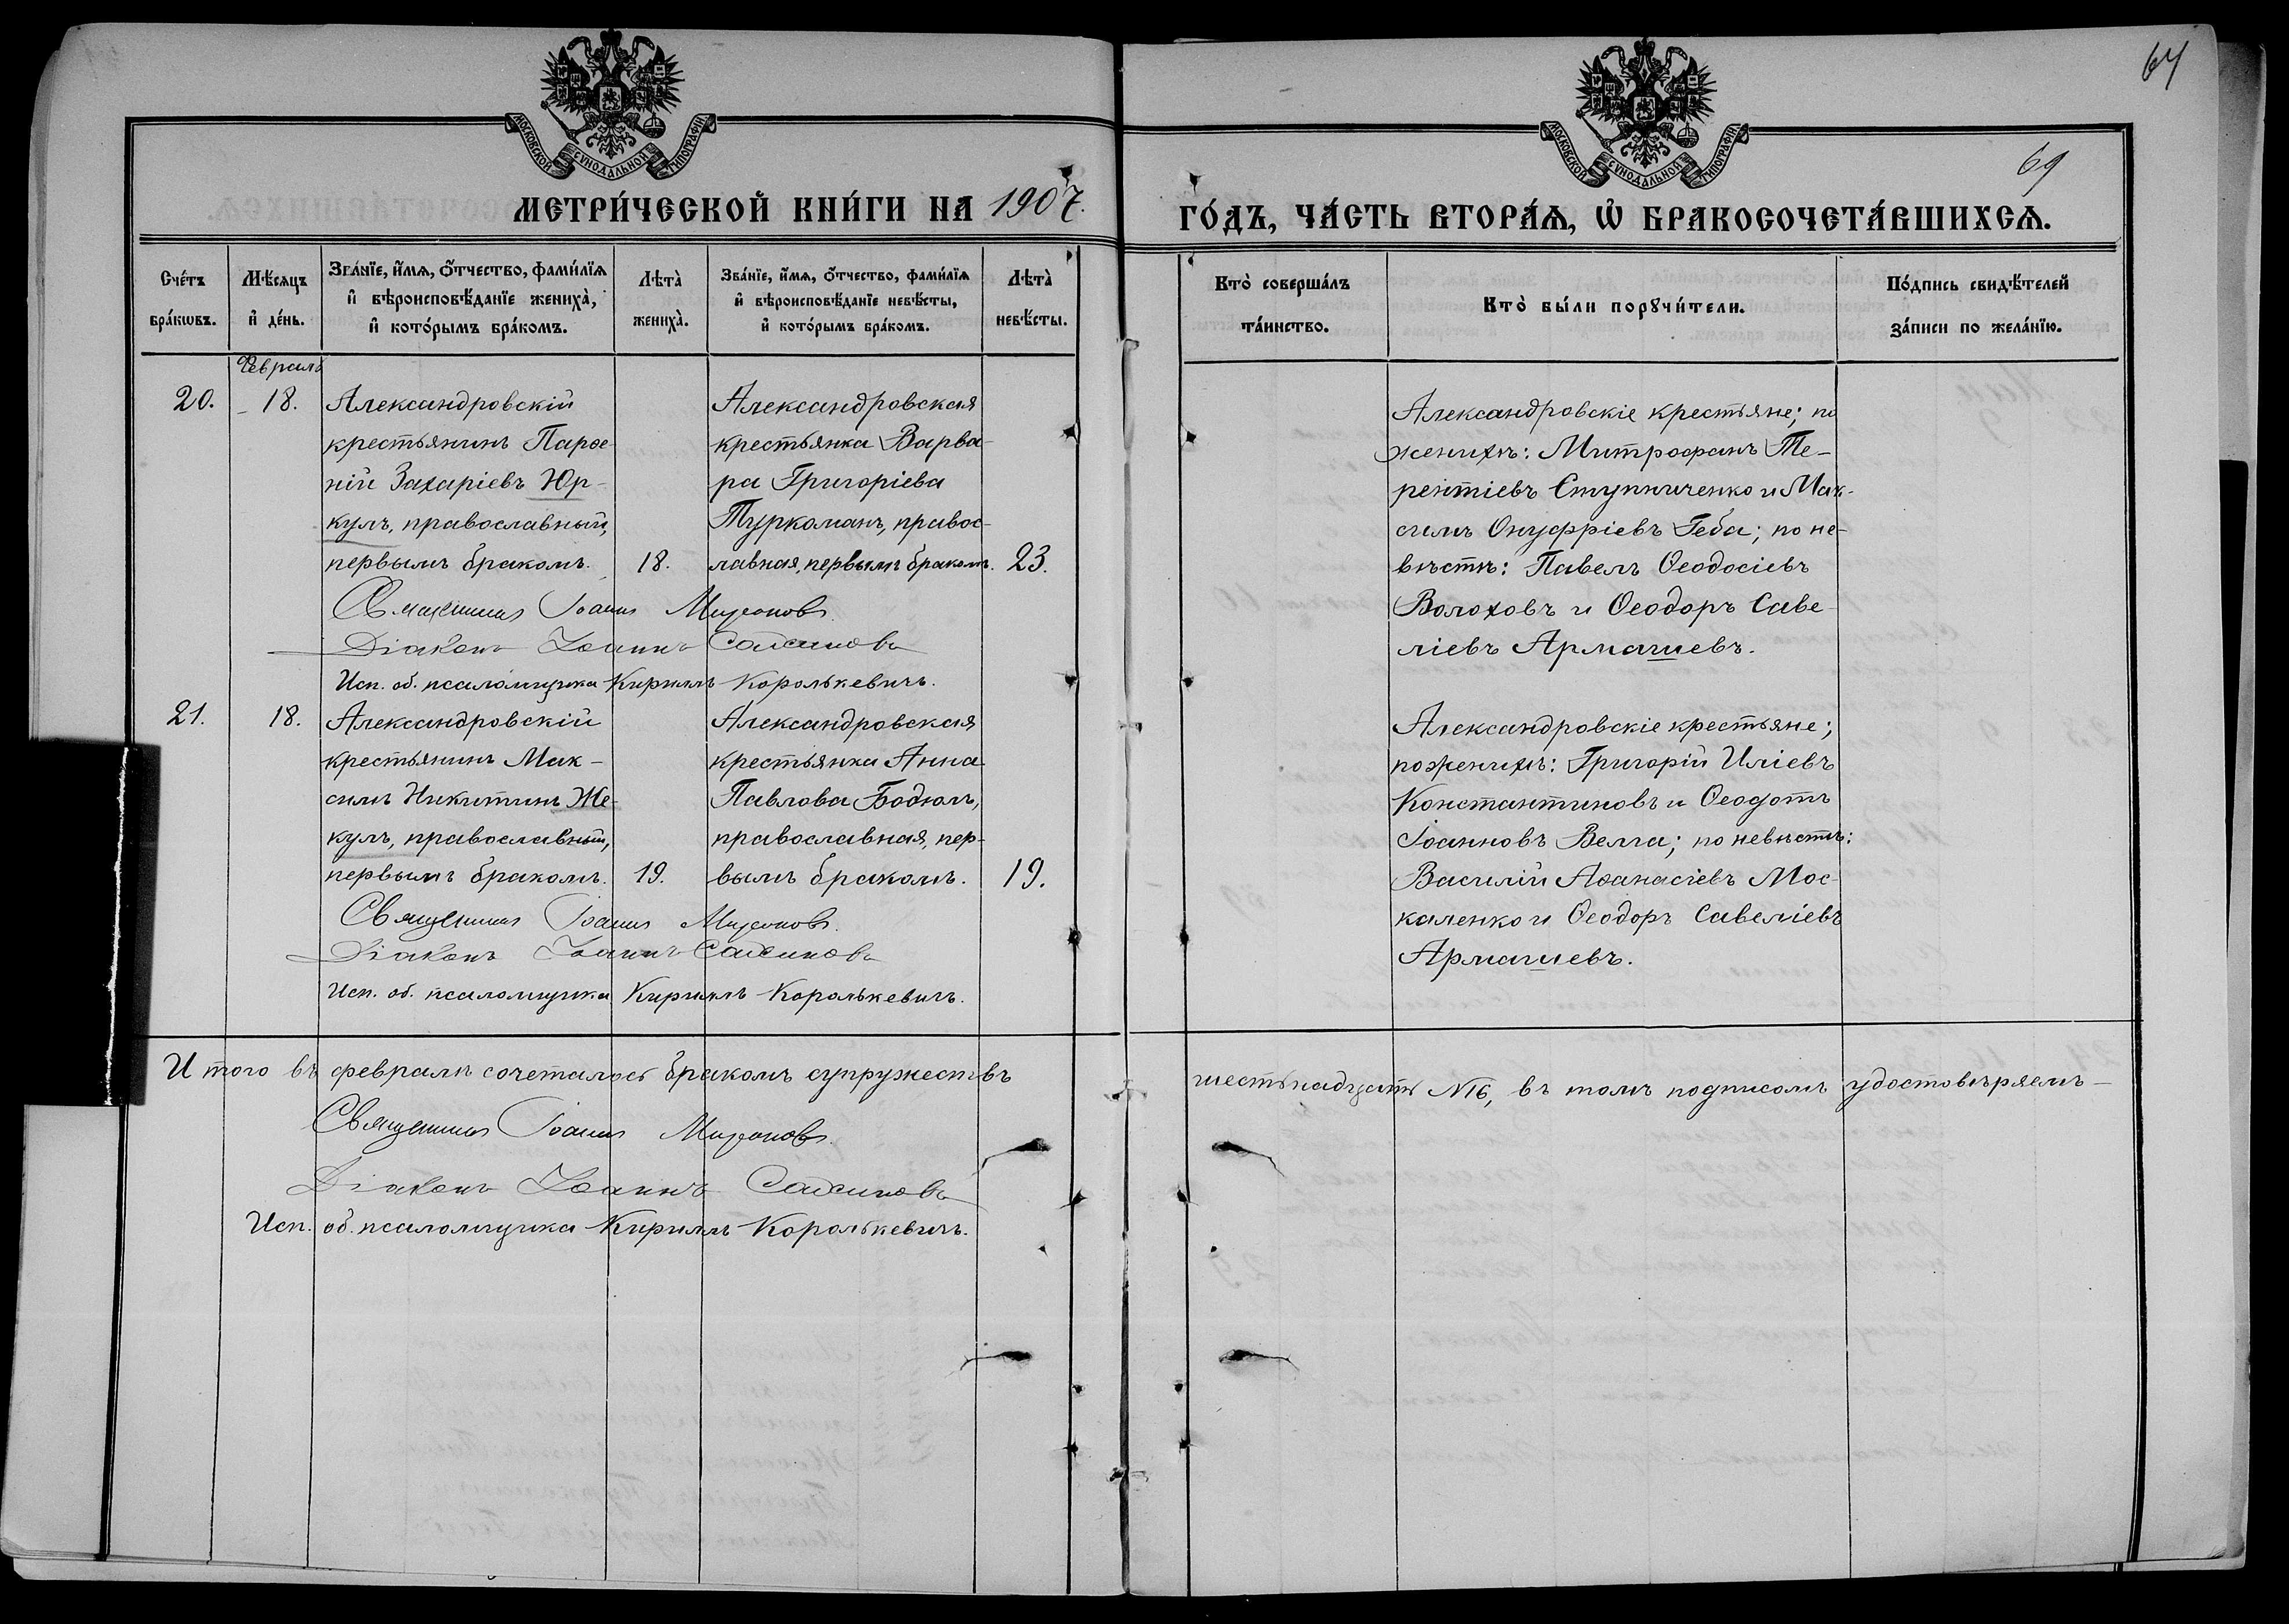 64
69
МОСКОВСКОЙ СѴНОДАЛЬНОЙ ТИПОГРАФІИ
МОСКОВСКОЙ СѴНОДАЛЬНОЙ ТИПОГРАФІИ
МЕТРИ́ЧЕСКОЙ КНИ́ГИ НА 1907.
ГО́ДЪ, ЧА́СТЬ ВТОРА́Ѧ, Ѽ БРАКОСОЧЕТА́ВШИХСѦ.
Сче́тъ
бра́кѡвъ.
Мѣ́сѧцъ
и҆ де́нь.
Зва́нїе, и҆́мѧ, ѻ҆́тчество, фами́лїѧ
и҆ вѣроисповѣ́данїе жениха̀,
и҆ кото́рымъ бра́комъ.
Лѣта̀
жениха̀.
Зва́нїе, и҆́мѧ, ѻ҆́тчество, фами́лїѧ
и҆ вѣроисповѣ́данїе невѣ́сты,
и҆ кото́рымъ бра́комъ.
Лѣта̀
невѣ́сты.
Кто̀ соверша́лъ
та́инство.
Кто̀ бы́ли порꙋчи́тели.
По́дпись свидѣ́телей
за́писи по жела́нїю.
Февраль
20.
18.
Александровскій
крестьянинъ Парѳе-
ній Захаріевъ Юр-
кулъ, православный,
первымъ бракомъ.
18.
Александровская
крестьянка Варва-
ра Григоріева
Туркоманъ, правос-
лавная, первымъ бракомъ.
23.
Александровскіе крестьяне; по
женихѣ: Митрофанъ Те-
рентіевъ Ступниченко и Мак-
симъ Онуфріевъ Геба; по не-
вѣстѣ: Павелъ Ѳеодосіевъ
Волоховъ и Ѳеодоръ Саве-
ліевъ Армашевъ.
Священникъ Іоаннъ Миронов
Діаконъ Іоаннъ
Исп. об. псаломщика Кириллъ Королькевичъ.
21.
18.
Александровскій
крестьянинъ Мак-
симъ Никитинъ Же-
кулъ, православный,
первымъ бракомъ.
19.
Александровская
крестьянка Анна
Павлова Бодюлъ,
православная, пер-
вымъ бракомъ.
19.
Александровскіе крестьяне;
по женихѣ: Григорій Иліевъ
Константиновъ и Ѳеодотъ
Іоанновъ Велча; по невѣстѣ:
Василій Аѳанасіевъ Мос-
каленко и Ѳеодоръ Савеліевъ
Армашевъ.
Священникъ Іоаннъ Миронов
Діаконъ Іоаннъ
Исп. об. псаломщика Кириллъ Королькевичъ.
Итого въ февралѣ сочеталось бракомъ супружествъ шестьнадцать №16, въ томъ подписомъ удостовѣряемъ
Священникъ Іоаннъ Миронов
Діаконъ Іоаннъ
Исп. об. псаломщика Кириллъ Королькевичъ.